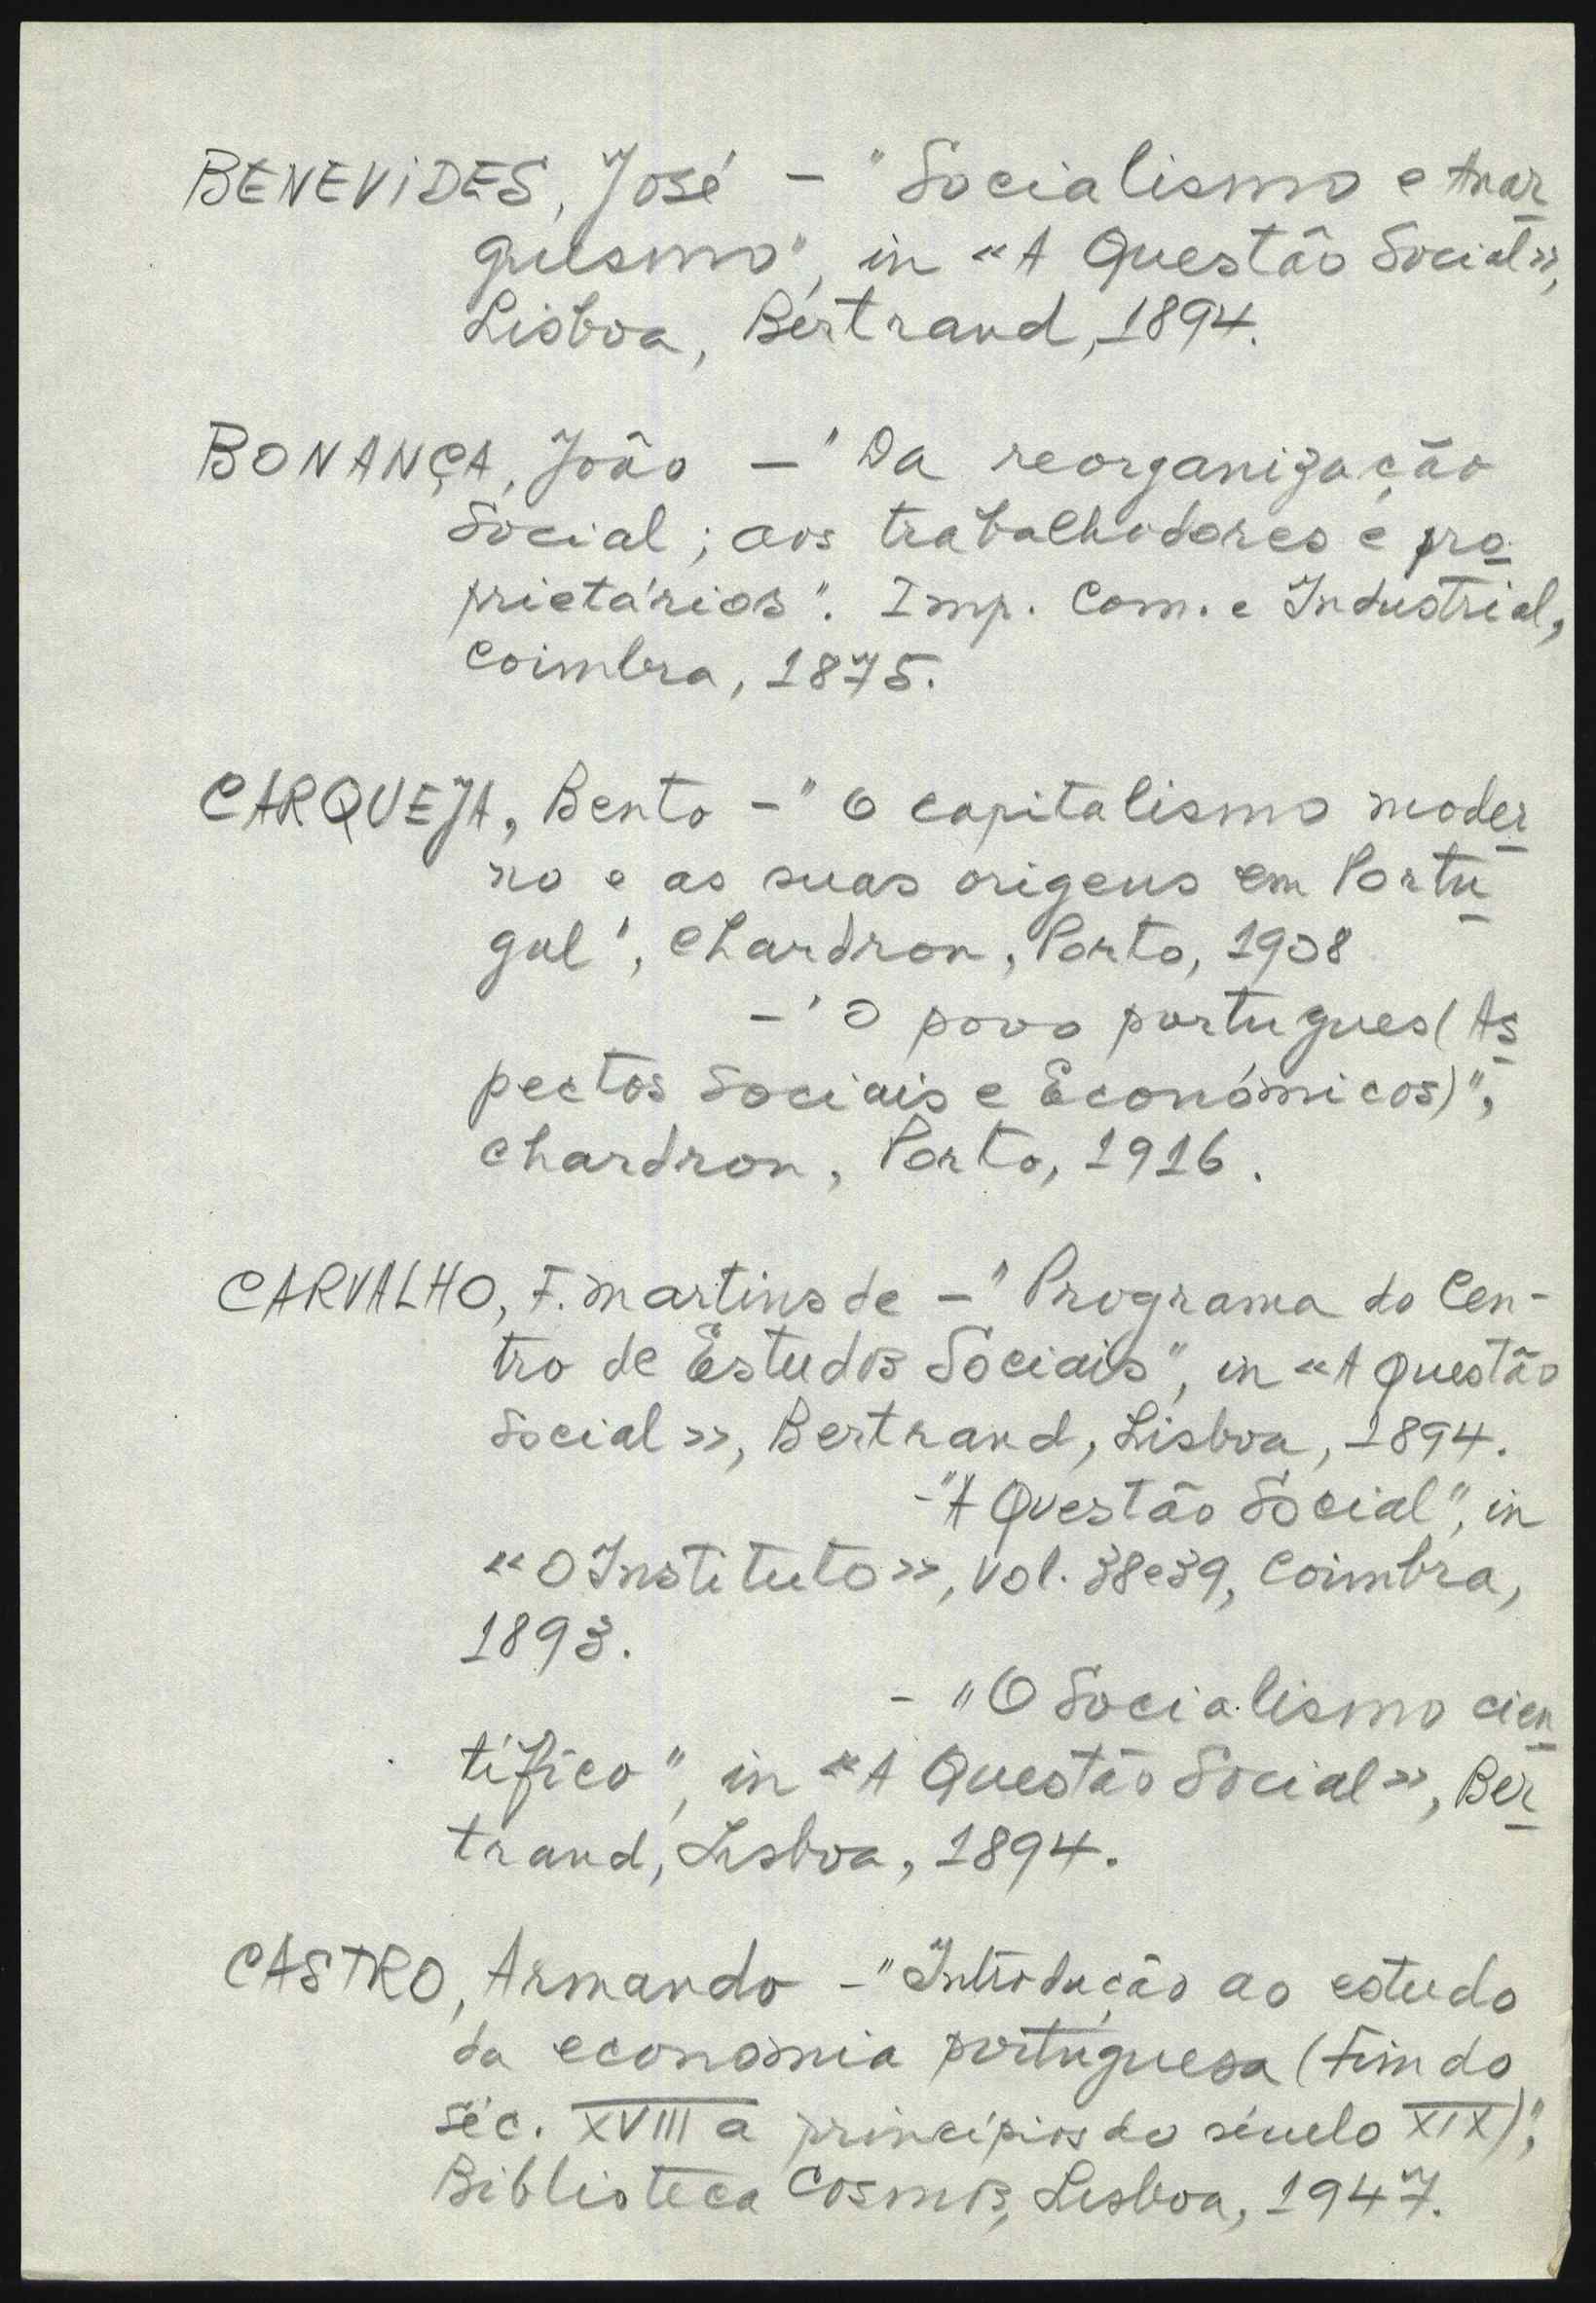 BENEVIDES, José - "Socialismo e Anar
quismo", in «A Questão Social»,
Lisboa, Bertrand, 1894.
BONANÇA, João - "Da reorganização
Social; aos trabalhadores e pro
prietários". Imp. Com. e Industrial,
Coimbra, 1875.
CARQUEJA, Bento - "O capitalismo moder
no e as suas origens em Portu
gal", Chardron, Porto, 1908
- "O povo portugues (As
pectos Sociais e Económicos)",
Chardron, Porto, 1916.
CARVALHO, F. Martins de - "Programa do Cen-
tro de Estudos Sociais", in «A Questão
Social», Bertrand, Lisboa, 1894.
- "A Questão Social", in
«O Instituto», Vol. 38 e 39, Coimbra,
1893.
- "O Socialismo cien
tífico", in «A Questão Social», Ber
trand, Lisboa, 1894.
CASTRO, Armando - "Introdução ao estudo
da economia portuguesa (Fim do
séc. XVIII a princípios do século XIX)",
Biblioteca Cosmos, Lisboa, 1947.